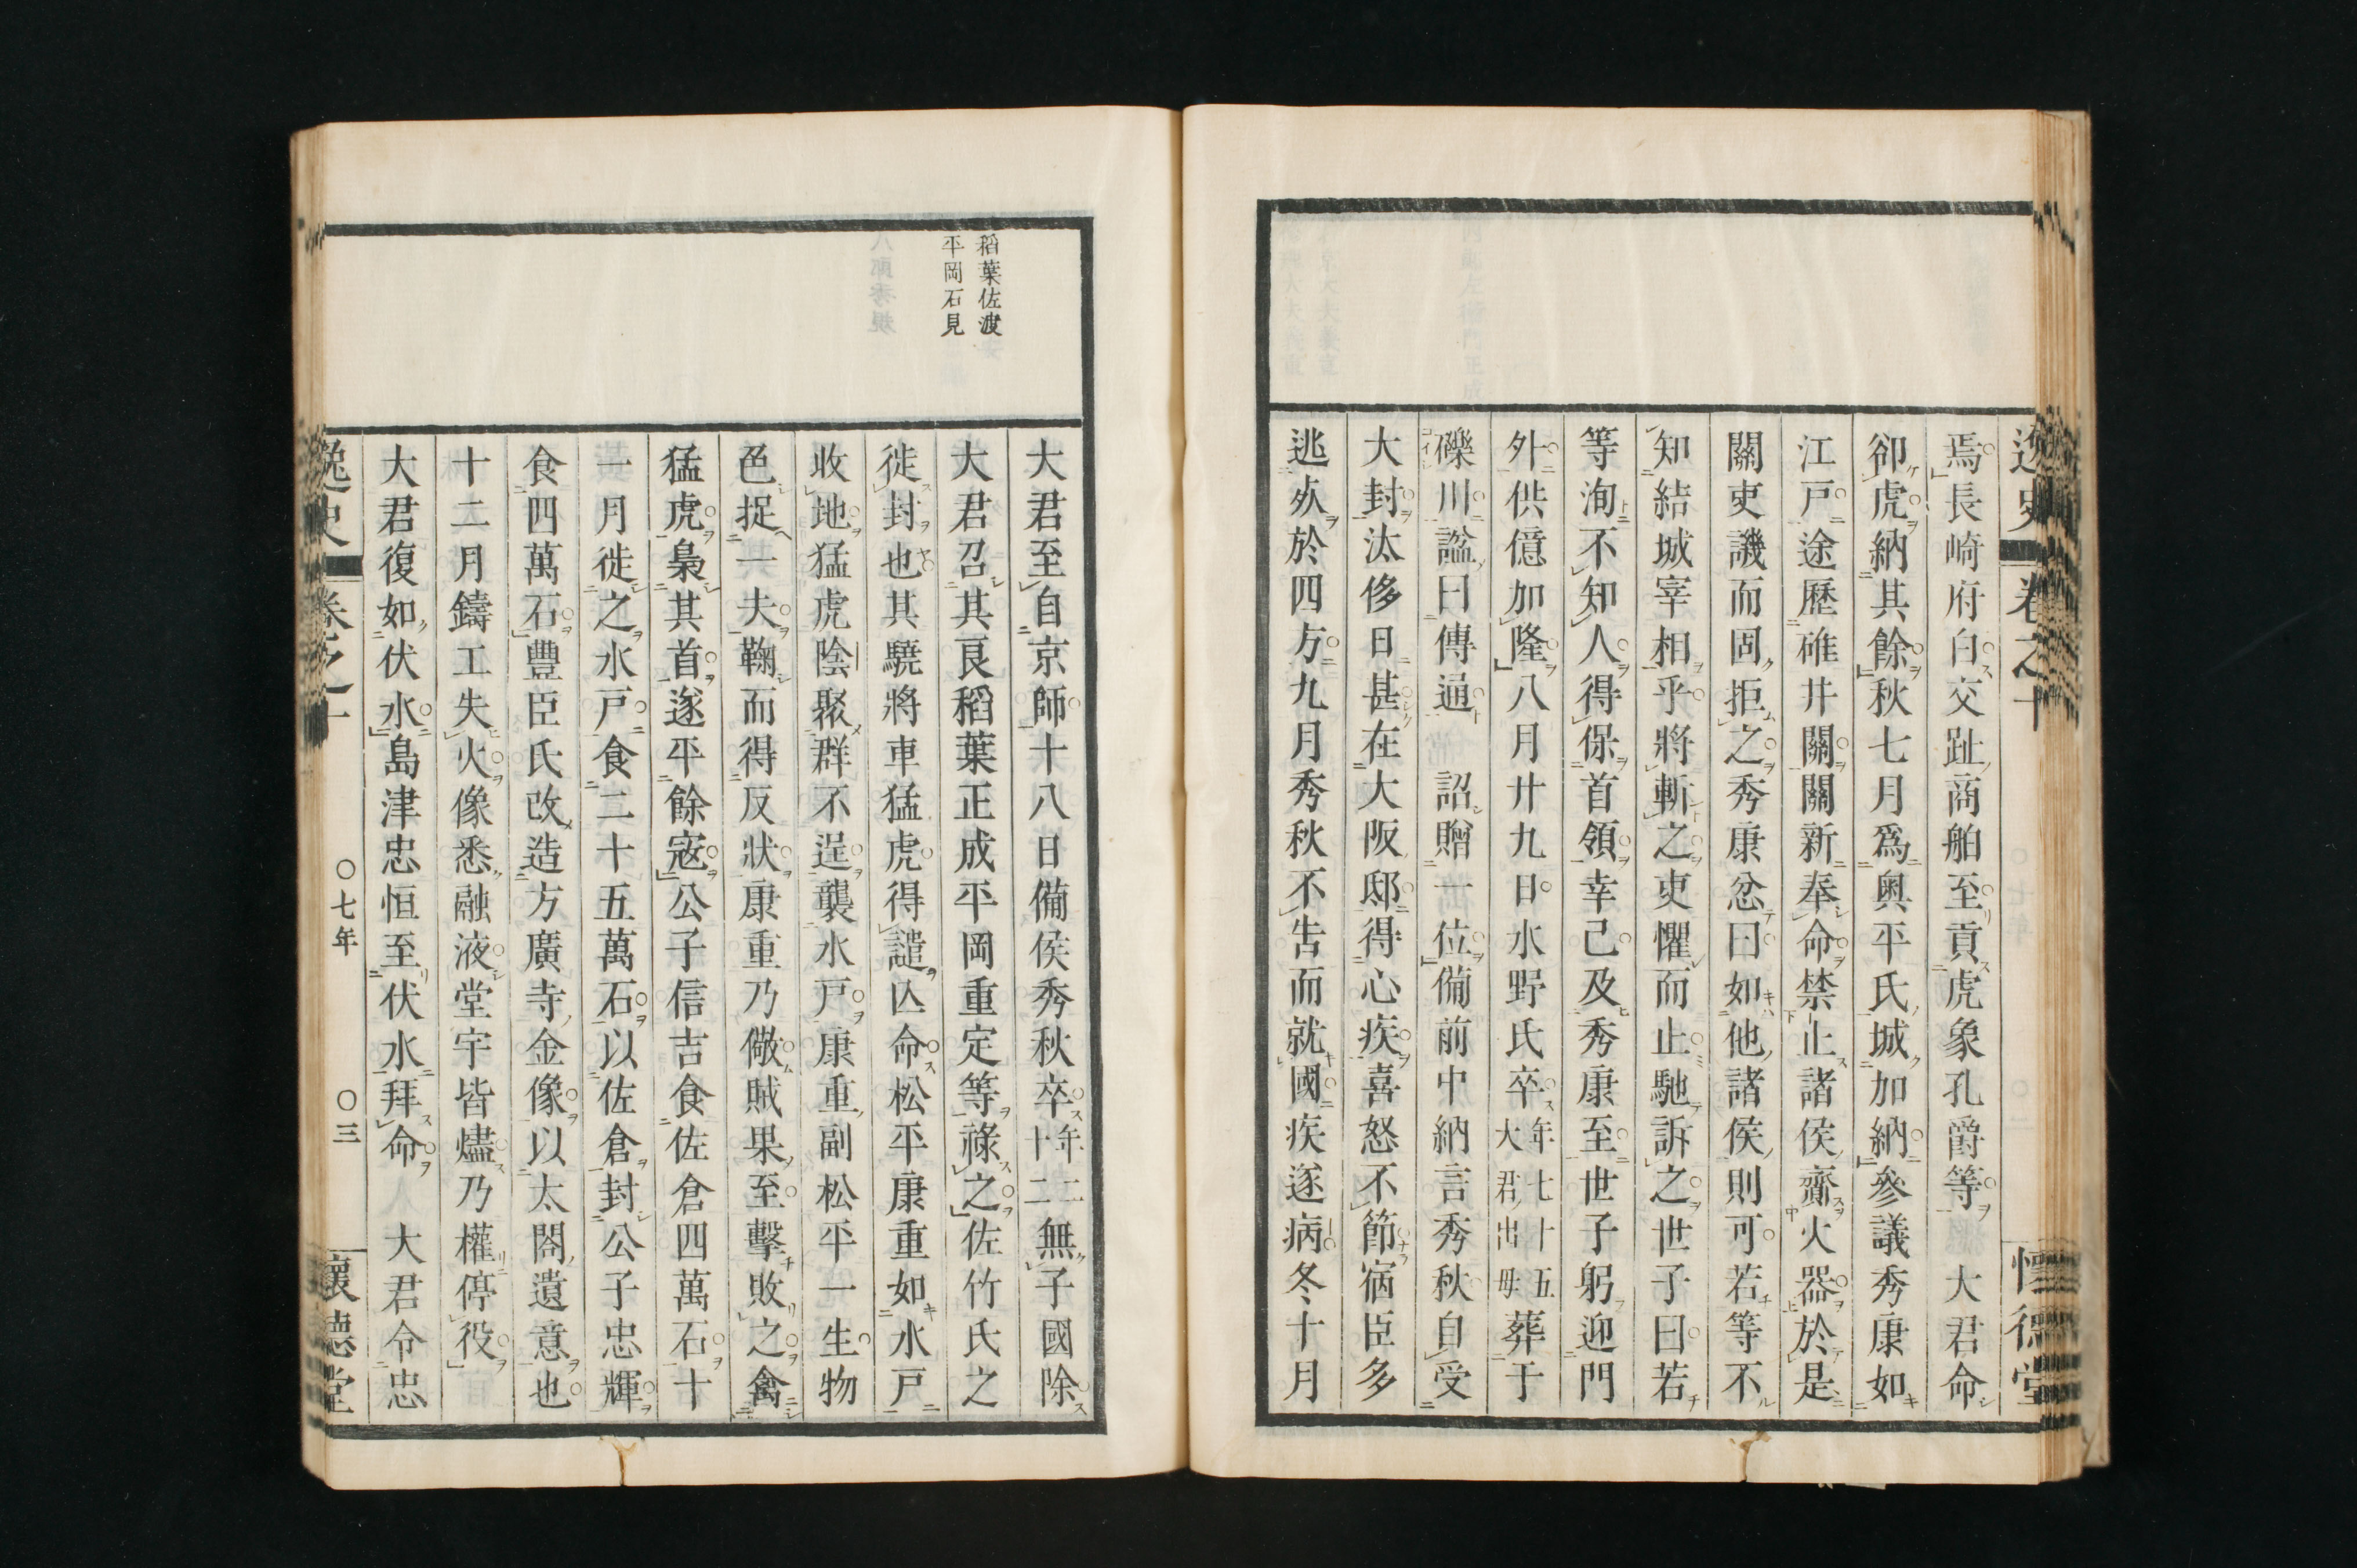 焉長崎府白交趾商舶至貢虎象孔爵等　大君命
卻虎納其餘秋七月爲奧平氏城加納參議秀康如
江戸途歷碓井關關新奉命禁止諸侯齎火器於是
關吏譏而固拒之秀康忿曰如他諸侯則可若等不
知結城宰相乎將斬之吏懼而止馳訴之世子曰若
等洵不知人得保首領幸己及秀康至世子躬迎門
外供億加隆八月廿九日水野氏卒年七十五大君出母葬于
礫川諡曰傳通　詔贈一位備前中納言秀秋自受
大封汰侈日甚在大阪邸得心疾喜怒不節宿臣多
逃㪽於四方九月秀秋不告而就國疾遂病冬十月
稻葉佐渡
平岡石見
大君至自京師十八日備侯秀秋卒年二十二無子國除
大君召其良稻葉正成平岡重定等祿之佐竹氏之
徙封也其驍將車猛虎得譴亾命松平康重如水戸
收地猛虎陰聚群不逞襲水戸康重副松平一生物
色捉一夫鞠而得反狀康重乃儆賊果至擊敗之禽
猛虎梟其首遂平餘寇公子信吉食佐倉四萬石十
一月徙之水戸食二十五萬石以佐倉封公子忠輝
食四萬石豐臣氏改造方廣寺金像以太閤遺意也
十二月鑄工失火像悉融液堂宇皆燼乃權停役
大君復如伏水島津忠恒至伏水拜命　大君令忠
逸史　卷之十　〇七年　〇三　懷德堂